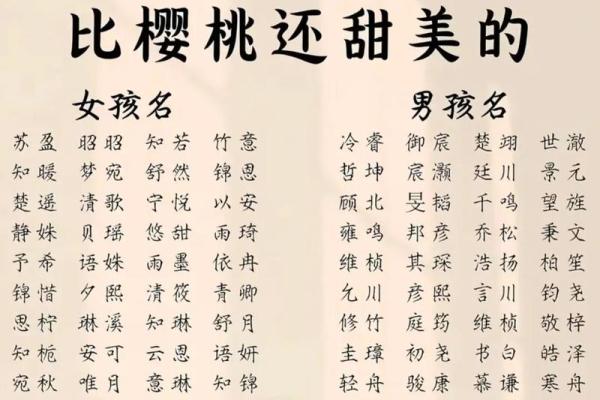 比樱桃还甜美的
女孩名 男孩名
苏盈 昭昭 知若 竹意 冷睿 御宸 楚翊 世澈
知暖 梦宛 舒然 锦恩 哲坤 宸灏 廷川 景元
楚遥 清歌 宁悦 以安 顾北 旻韬 千鸣 望旌
静姝 贝瑶 悠甜 雨琦 雍鸣 邦彦 乔松 秉文
予希 语姝 雨墨 依冉 维桢 其琛 浩扬 柏笙
锦惜 夕熙 清筱 青卿 允川 彦熙 言川 钧尧
思柠 琳溪 知琳 舒月 修竹 庭筠 维桢 敬梓
知栀 安可 云恩 语妍 圭璋 初尧 书白 皓泽
宛秋 唯月 意琳 知锦 轻舟 骏康 慕谦 寒舟